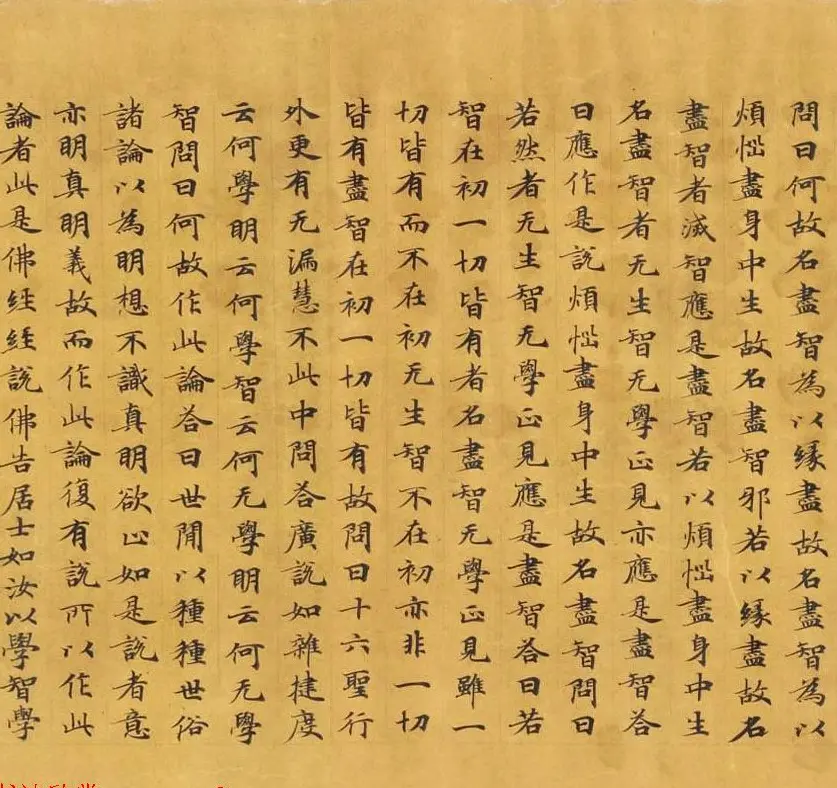 問曰何故名盡智為以縁盡故名盡智為以
煩惱盡身中生故名盡智邪若以縁盡故名
盡智者滅智應是盡智若以煩惱盡身中生
名盡智者无生智无學正見亦應是盡智荅
曰應作是説煩惱盡身中生故名盡智問曰
若然者无生智无學正見應是盡智荅曰若
智在初一切皆有者名盡智无學正見雖一
切皆有而不在初无生智不在初亦非一切
皆有盡智在初一切皆有故問曰十六聖行
外更有无漏慧不此中問荅廣説如雜揵度
云何學明云何學智云何无學明云何无學
智問曰何故作此論荅曰世間以種種世俗
諸論以為明想不識真明欲止如是説者意
亦明真明義故而作此論復有説所以作此
論者此是佛経経説佛告居士如汝以學智學